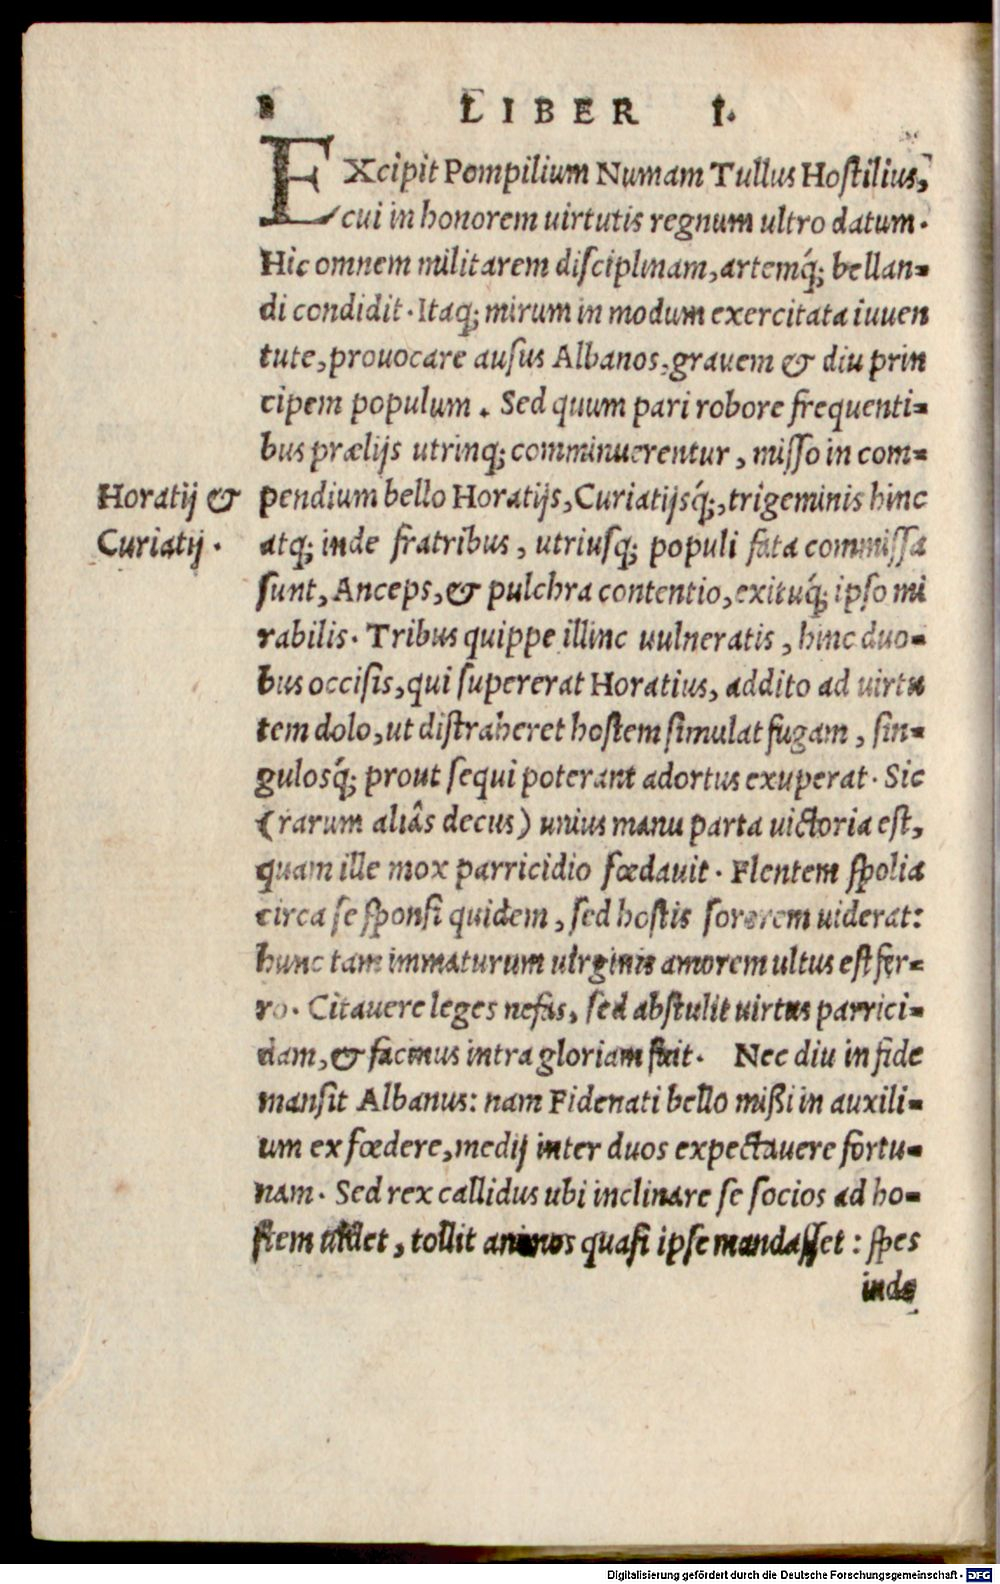 8 LIBER I.
EXcipit Pompilium Numam Tullus Hostilius,
cui in honorem uirtutis regnum ultro datum.
Hic omnem militarem disciplinam, artemq́; bellan-
di condidit. Itaq; mirum in modum exercitata iuuen
tute, prouocare ausus Albanos, grauem & diu prin
cipem populum. Sed quum pari robore frequenti-
bus prælijs utrinq; comminuerentur, misso in com-
Horatij &
Curiatij.
pendium bello Horatijs, Curiatijsq́;, trigeminis hinc
atq; inde fratribus, utriusq; populi fata commissa
sunt, Anceps, & pulchra contentio, exituq́; ipso mi
rabilis. Tribus quippe illinc uulneratis, hinc duo-
bus occisis, qui supererat Horatius, addito ad uirtu
tem dolo, ut distraheret hostem simulat fugam, sin-
gulosq́; prout sequi poterant adortus exuperat. Sic
(rarum aliâs decus) unius manu parta uictoria est,
quam ille mox parricidio fœdauit. Flentem spolia
circa se sponsi quidem, sed hostis sororem uiderat:
hunc tam immaturum uirginis amorem ultus est fer-
ro. Citauere leges nefas, sed abstulit uirtus parrici-
dam, & facinus intra gloriam fuit. Nec diu in fide
mansit Albanus: nam Fidenati bello mißi in auxili-
um ex fœdere, medij inter duos expectauere fortu-
nam. Sed rex callidus ubi inclinare se socios ad ho-
stem uidet, tollit animos quasi ipse mandasset: spes
inde
Digitalisierung gefördert durch die Deutsche Forschungsgemeinschaft - DFG